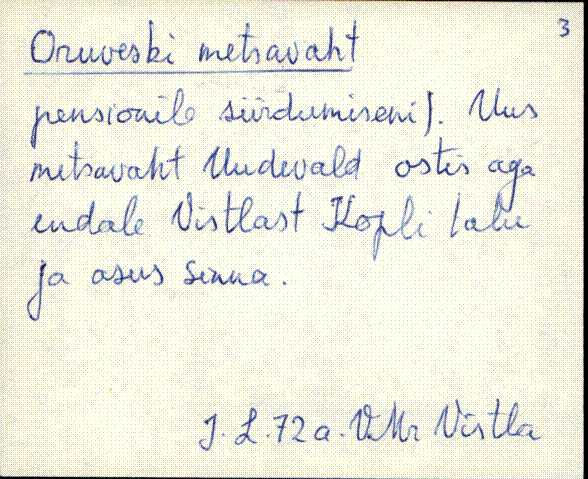 3
Oruveski metsavaht
pensionile siirdumiseni). Uus
metsavaht Uudevald ostis aga
endale Vistlast Kopli talu
ja asus sinna.
J. L. 72 a. VMr Vistla